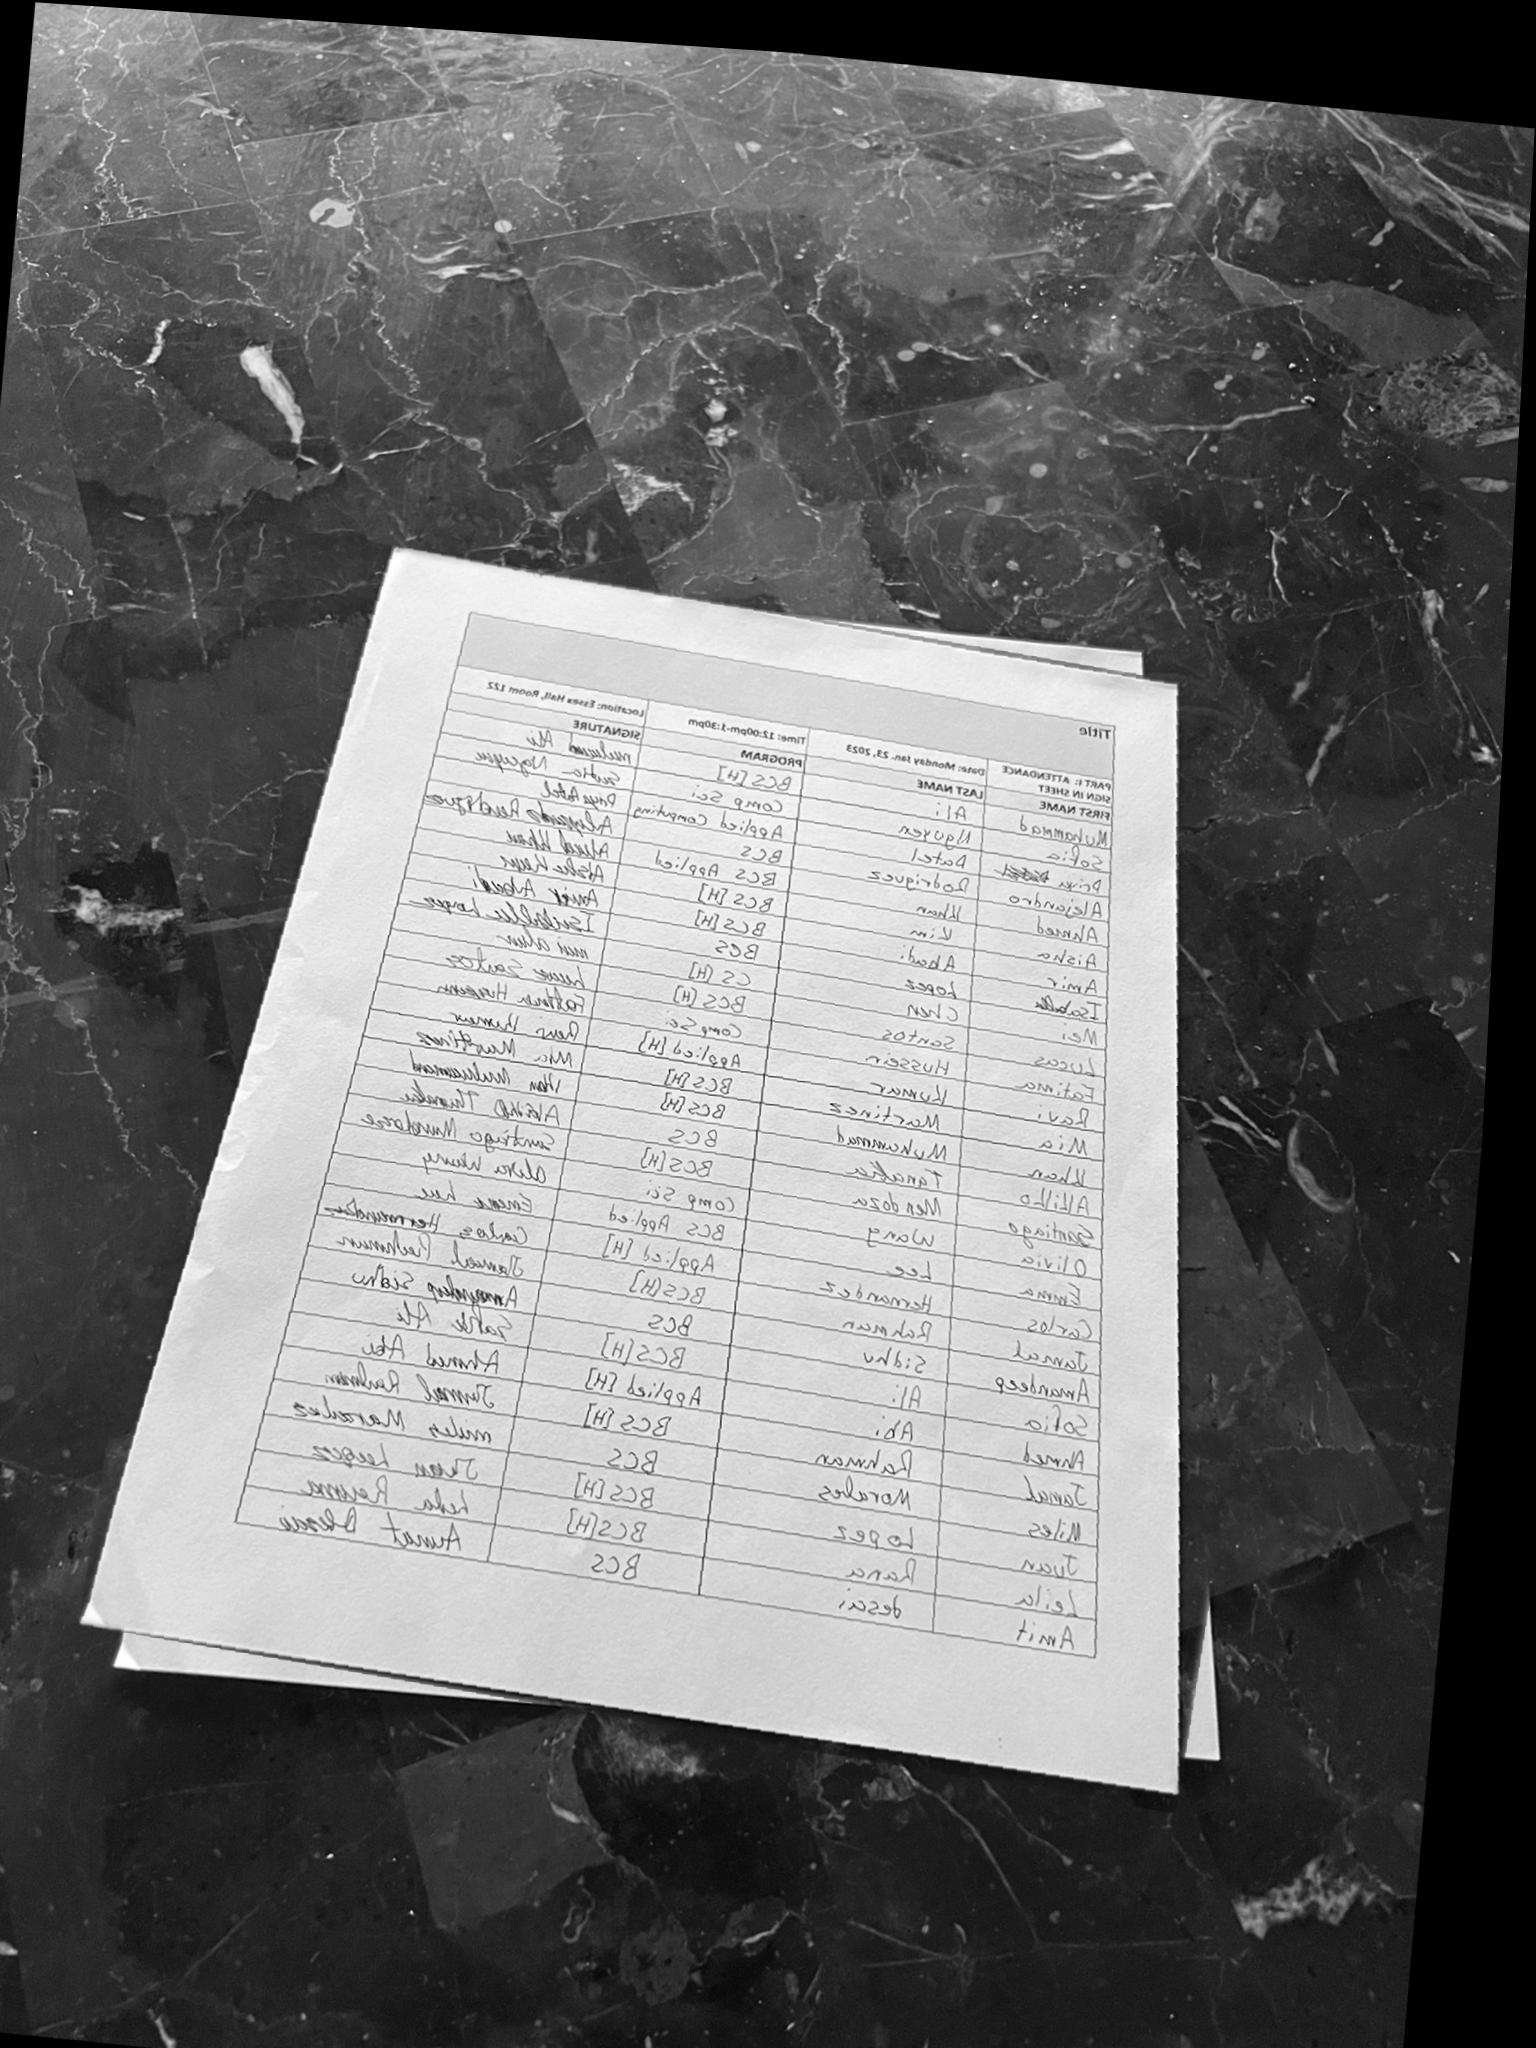 Title
PART I: ATTENDANCE SIGN IN SHEET Date: Monday Jan, 23, 2023 Time: 12:00pm-1:30pm Location: Essex Hall, Room 122
FIRST NAME LAST NAME PROGRAM SIGNATURE
Muhammad Ali BCS [H] Ali
Sofia Nguyen Comp Sci Nguyen
Priya Patel Applied Computing
Alejandro Rodriguez BCS Alejandro Rodriguez
Ahmed Khan BCS Applied Ahmed Khan
Aisha Kim BCS [H]
Amir Abadi BCS [H] Amir Abadi
Isabella Lopez BCS Isabella Lopez
Mei Chen CS [H]
Lucas Santos BCS [H] Santos
Fatima Hussein Comp Sci Fatima
Ravi Kumar Applied [H]
Mia Martinez BCS [H] Mia Martinez
Khan Muhammad BCS [H] Muhammad
Tanaka BCS
Santiago Mendoza BCS [H] Santiago
Olivia Wang Comp Sci
Emma Lee BCS Applied
Carlos Hernandez Applied [H] Carlos Hernandez
Jamal Rahman BCS [H]
Amandeep Sidhu BCS Amandeep Sidhu
Sofia Ali BCS [H] Ali
Ahmed Abi Applied [H] Ahmed Abi
Jamal Rahman BCS [H] Jamal Rahman
Miles Morales BCS miles
Juan Lopez BCS [H] Juan
Leila Rana BCS [H]
Amit desai BCS